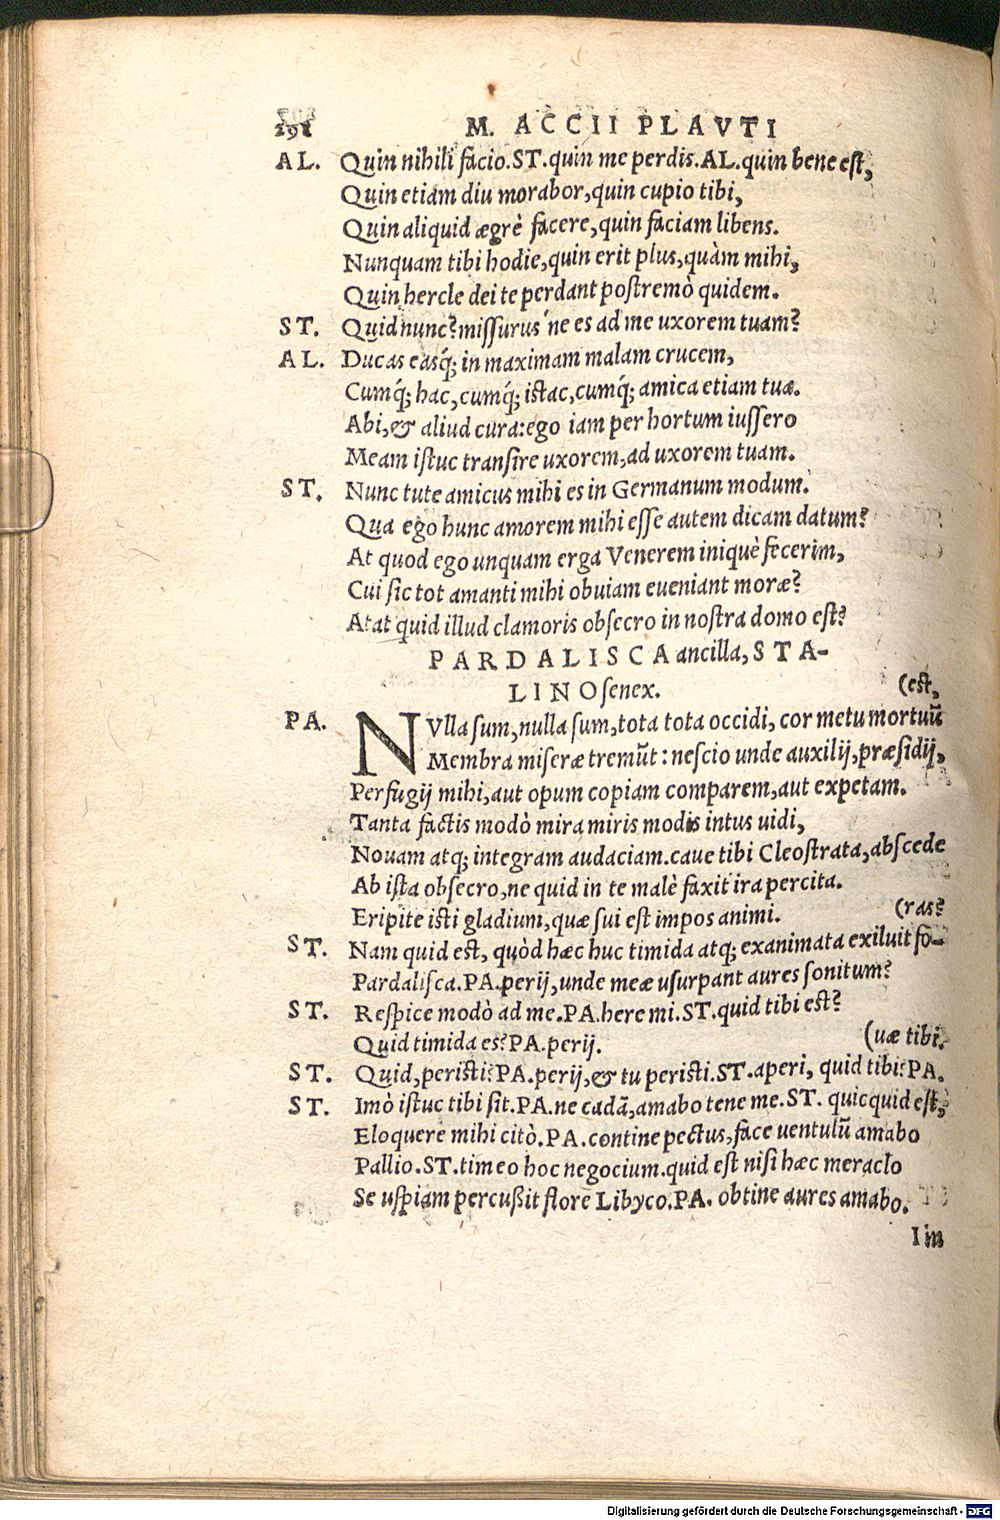 292 M. ACCII PLAVTI
AL. Quin nihili facio.ST.quin me perdis.AL.quin bene est,
Quin etiam diu morabor,quin cupio tibi,
Quin aliquid ægrè facere,quin faciam libens.
Nunquam tibi hodie,quin erit plus,quàm mihi,
Quin hercle dei te perdant postremò quidem.
ST. Quid nunc?missurus'ne es ad me uxorem tuam?
AL. Ducas easq́; in maximam malam crucem,
Cumq́; hac,cumq́; istac,cumq́; amica etiam tuæ.
Abi,& aliud cura:ego iam per hortum iussero
Meam istuc transire uxorem,ad uxorem tuam.
ST. Nunc tute amicus mihi es in Germanum modum.
Qua ego hunc amorem mihi esse autem dicam datum?
At quod ego unquam erga Venerem iniquè fecerim,
Cui sic tot amanti mihi obuiam eueniant moræ?
Atat quid illud clamoris obsecro in nostra domo est?
PARDALISCA ancilla, STA-
LINO senex. (est,
PA. NVlla sum,nulla sum,tota tota occidi, cor metu mortuũ
Membra miseræ tremũt: nescio unde auxilij,præsidij,
Perfugij mihi,aut opum copiam comparem,aut expetam.
Tanta factis modò mira miris modis intus uidi,
Nouam atq; integram audaciam.caue tibi Cleostrata,abscede
Ab ista obsecro,ne quid in te malè faxit ira percita.
Eripite isti gladium,quæ sui est impos animi. (ras?
ST. Nam quid est, quòd hæc huc timida atq; exanimata exiluit fo-
Pardalisca.PA.perij,unde meæ usurpant aures sonitum?
ST. Respice modò ad me.PA.here mi.ST.quid tibi est?
Quid timida es?PA.perij. (uæ tibi.
ST. Quid,peristi?PA.perij,& tu peristi.ST.aperi, quid tibi?PA.
ST. Imò istuc tibi sit.PA.ne cadã,amabo tene me.ST. quicquid est,
Eloquere mihi citò.PA.contine pectus,face uentulũ amabo
Pallio.ST.timeo hoc negocium.quid est nisi hæc meraclo
Se uspiam percußit flore Libyco.PA. obtine aures amabo.
Im
Digitalisierung gefördert durch die Deutsche Forschungsgemeinschaft - DFG